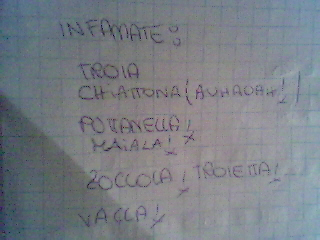 INFAMATE:
TROIA
CHIATTONA (AUHAUAH!)
PUTTANELLA!
MAIALA!
ZOCCOLA! TROIETTA!
VACCA!